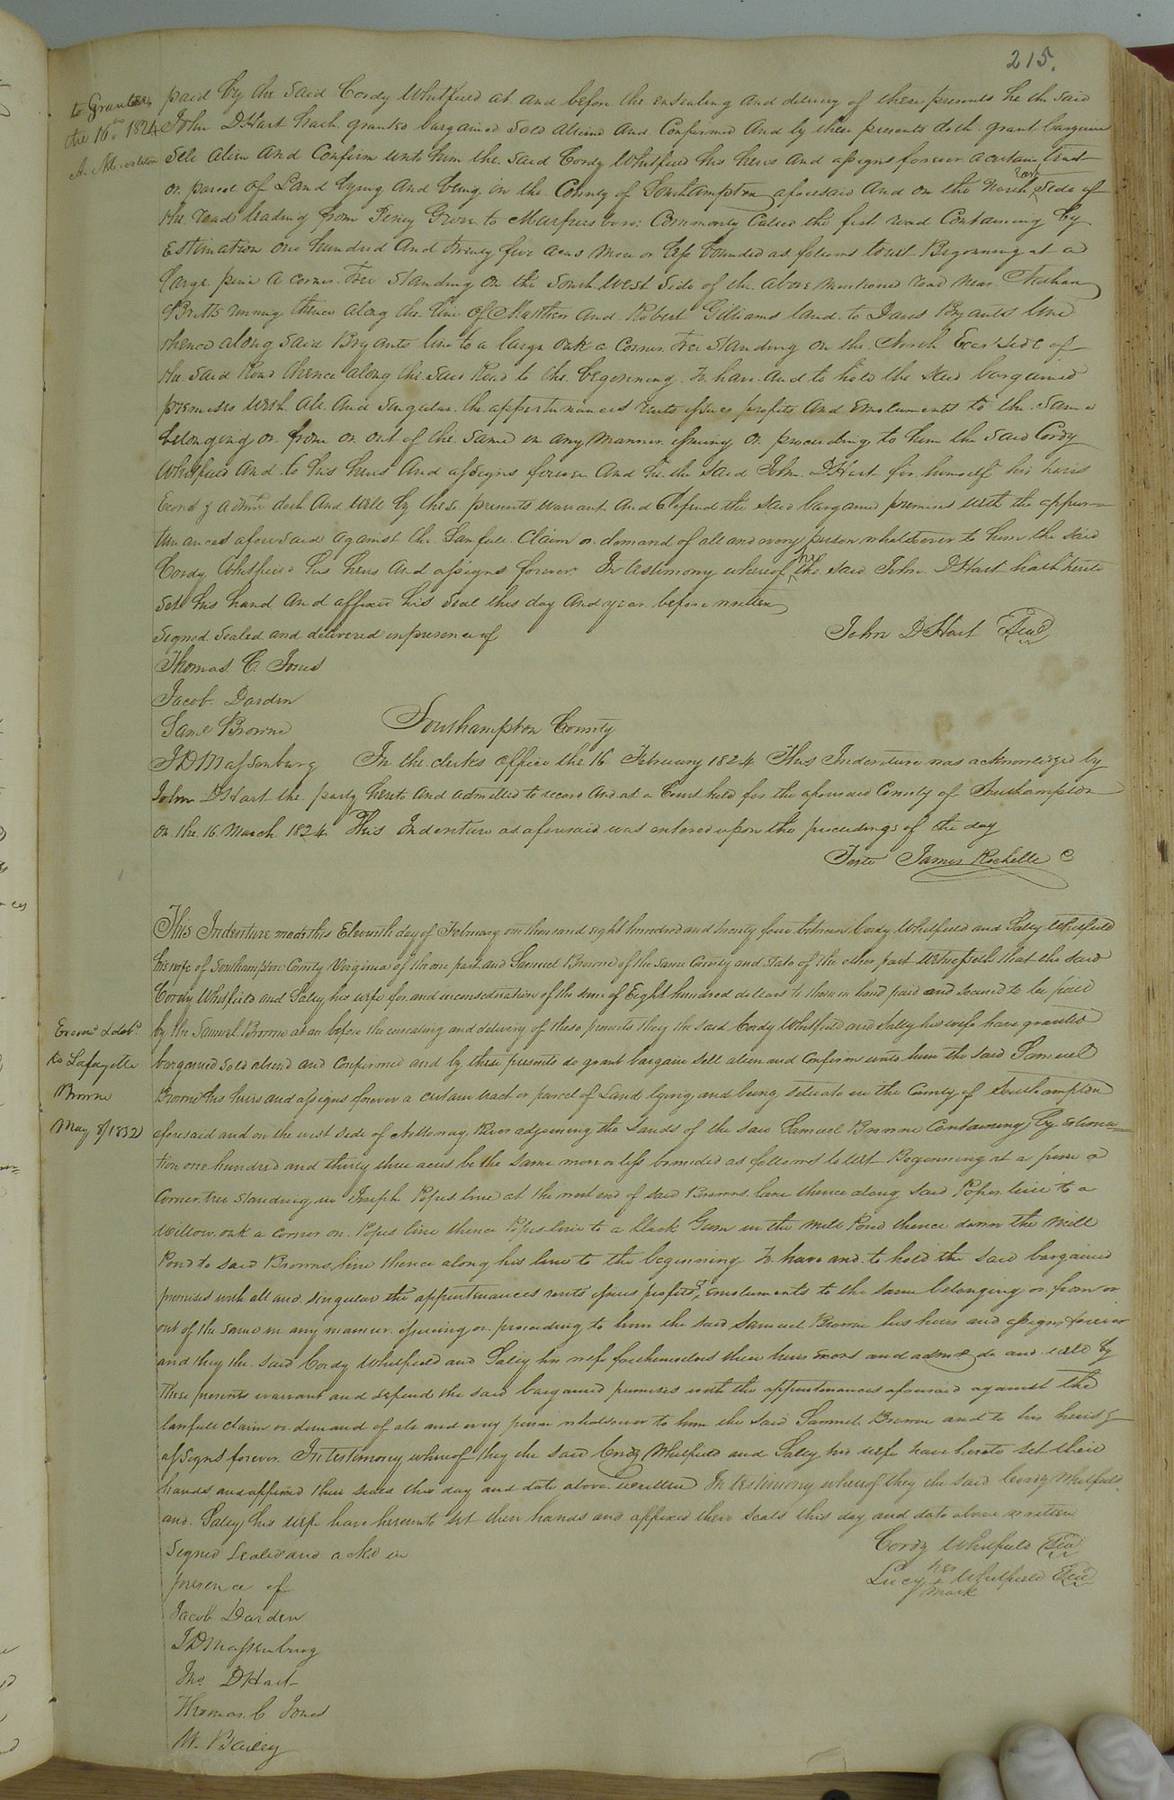 215.
to Grantee
the 16th 1824
paid by the said Cordy Whitfield at and before the ensealing and delivery of these presents he the said
John D Hart hath granted bargained sold aliened and Confirmed And by these presents doth grant bargain
Sell alien and Confirm unto him the said Cordy Whitfield his heirs and assigns forever a certain tract
or parcel of Land lying and being in the County of Southampton aforesaid And on the North East Side of
the road leading from Piney Grove to Murfrees boro: Commonly Called the first road Containing by
Estimation one hundred And twenty five acres more or less bounded as follows towit Beginning at a
large pine a corner Tree standing on the South West Side of the above mentioned road near
Britts runing thence along the line of Matthew and Robert Gilliams land to James Bryants line
thence along said Bryants line to a large oak a Corner Tree standing on the North East Side of
the said Road thence along the said Road to the beginning To have And to hold the said bargained
premises With All And Singular the appurtenances rents issues profits And emoluments to the same
belonging or from or out of the same in any Manner issuing or proceeding to him the said Cordy
Whitfield And to his heirs And assigns forever And he the said John D Hart for himself his heirs
Exors & admrs doth And Will by these presents warrant And Defend the said bargained premises with the appur=
tenances aforesaid against the Lawfull Claim or demand of all and every person whatsoever to him the said
Cordy Whitfield his heirs And assigns forever In testimony whereof he the said John D Hart hath hereto
Set his hand And affixed his Seal this day And year before written
Signed Sealed and delivered in presence of John D Hart Seal
Thomas C Jones
Jacob Darden
Saml Browne Southampton County
JD Massenburg In the clerks Office the 16 February 1824 This Indenture was acknowledged by
John D Hart the party hereto And admitted to record And at a Court held for the aforesaid County of Southampton
on the 16 March 1824 This Indenture as aforesaid was entered upon the proceedings of the day
Teste James Rochelle C
This Indenture made this Eleventh day of February one thousand eight hundred and twenty four between Cordy Whitfield and Salley Whitfield
his wife of Southampton County Virginia of the one part and Samuel Browne of the Same County and State of the other part Witnesseth that the said
Cordy Whitfield and Salley his wife for and in consideration of the sum of Eight hundred dollars to them in hand paid and secured to be paid
by the Samuel Browne at an before the ensealing and delivery of these presents they the said Cordy Whitfield and Salley his wife have granted
bargained sold aliened and Confirmed and by these presents do grant bargain sell alien and Confirm unto him the said Samuel
Browne his heirs and assigns forever a certain tract or parcel of Land lying and being situate in the County of Southampton
aforesaid and on the west side of Nottoway River adjoining the Lands of the said Samuel Browne Containing by estima=
tion one hundred and thirty three acres be the same more or less bounded as follows towit Beginning at a pine a
Corner tree standing in Joseph Popes line at the west end of said Brownes lane thence along said Popes line to a
Willow oak a corner on Popes line thence Popes line to a black Gum in the Mill Pond thence down the Mill
Pond to said Brownes line thence along his line to the beginning To have and to hold the said bargained
premises with all and singular the appurtenances rents issues profits & emoluments to the same belonging or from or
out of the same in any manner issueing or proceeding to him the said Samuel Browne his heirs and assigns forever
and they the said Cordy Whitfield and Salley his wife for themselves their heirs Exors and admrs do and will by
these presents warrant and defend the said bargained premises with the appurtenances aforesaid against the
lawfull claim or demand of all and every person whatsoever to him the said Samuel Browne and to his heirs &
assigns forever. In testimony whereof they the said Cordy Whitfield and Salley his wife have hereto set their
hands and affixed their seals this day and date above written In testimony whereof they the said Cordy Whitfield
and Salley his wife have hereunto set their hands and affixed their Seals this day and date above written
Signed Sealed and ackd in Cordy Whitfield Seal
presence of Lucy her mark Whitfield Seal
Jacob Darden
JD Massenburg
Jno D Hart
Thomas C Jones
W. Bailey
Examd & deld
to Lafayette
Browne
May 8/1832